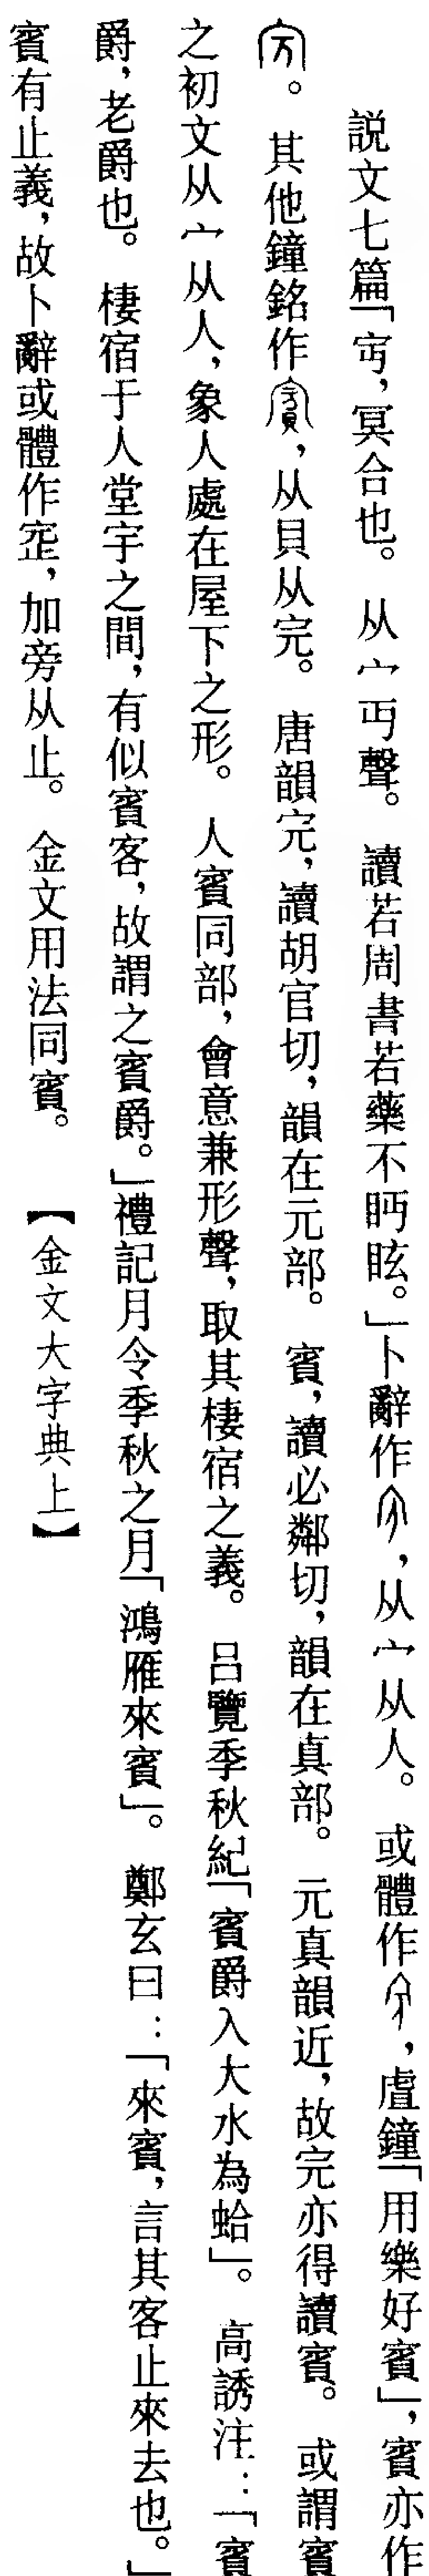 説文七篇「㝉，冥合也。 从宀丏聲。 讀若周書若藥不眄眩。」卜辭作，从宀从人。 或體作，虘鐘「用樂好賓」，賓亦作
。 其他鐘銘作，从貝从完。 唐韻完，讀胡官切，韻在元部。 賓，讀必鄰切，韻在真部。 元真韻近，故完亦得讀賓。 或謂賓
之初文从宀从人，象人處在屋下之形。 人賓同部，會意兼形聲，取其棲宿之義。 呂覽季秋紀「賓爵入大水為蛤」。 高誘注：「賓
爵，老爵也。 棲宿于人堂宇之間，有似賓客，故謂之賓爵。」禮記月令季秋之月「鴻雁來賓」。 鄭玄曰：「來賓，言其客止來去也。」
賓有止義，故卜辭或體作㝎，加旁从止。 金文用法同賓。 【金文大字典上】